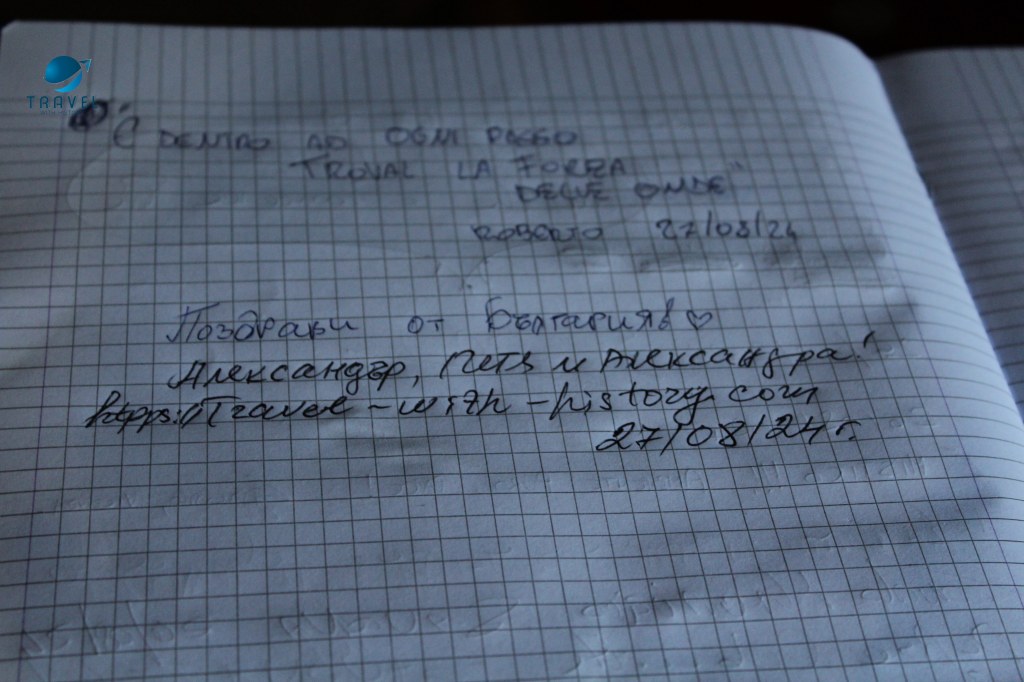 TRAVEL
"E DENTRO AD OGNI PASSO
TROVAI LA FORZA
DELLE ONDE"
ROBERTO 27/08/24
Поздрави от България ♡
Александър, Петя и Александра!
https://Travel-with-history.com
27/08/24 г.